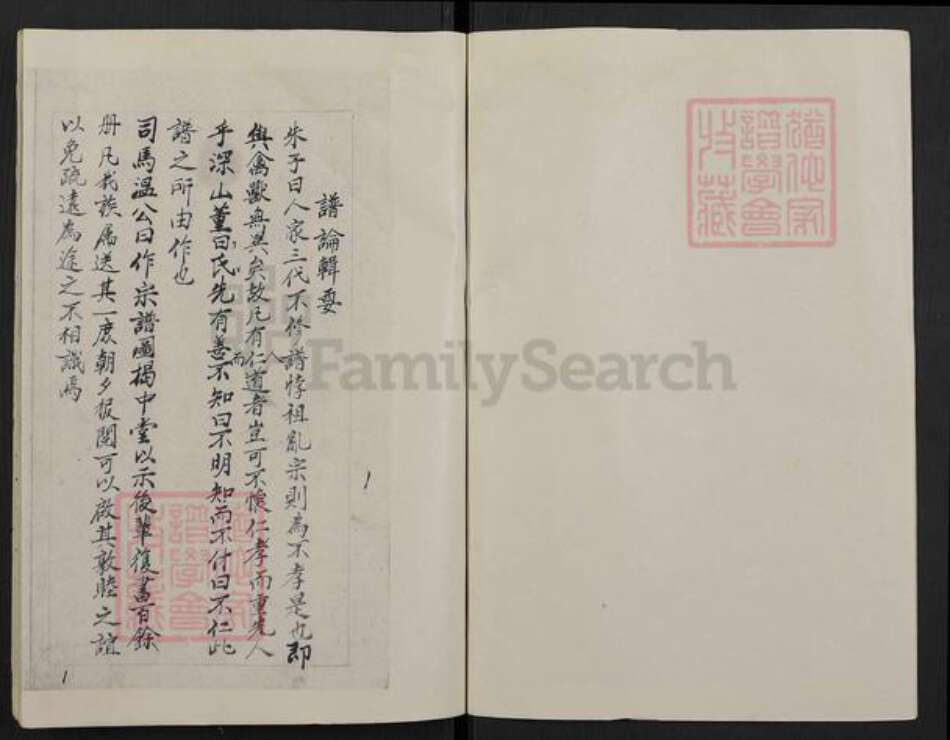 譜論輯要
朱子曰人家三代不修譜悖祖亂宗則為不孝是也即
與禽獸無異矣故凡有仁人道者豈可不懷仁孝而重先人
乎深山董曰氏先有善而不知曰不明知而不付曰不仁此
譜之所由作也
司馬溫公曰作宗譜圖揭中堂以示後輩復畫百餘
冊凡我族屬送其一度朝夕披閱可以啟其敦睦之誼
以免疏遠為途之不相識焉
1
1
譜學會
收藏
FamilySearch